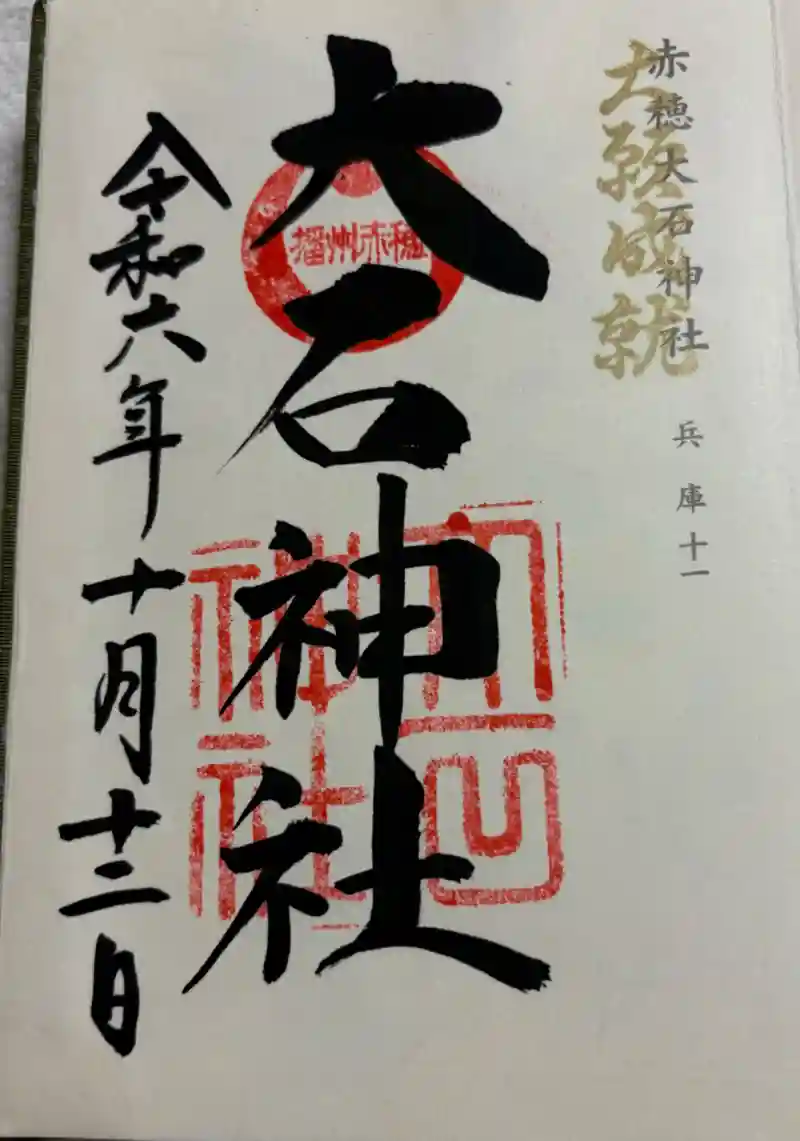 赤穂大石神社
兵庫十一
大願成就
大石神社
播州赤穂
大石神社
令和六年十月十二日